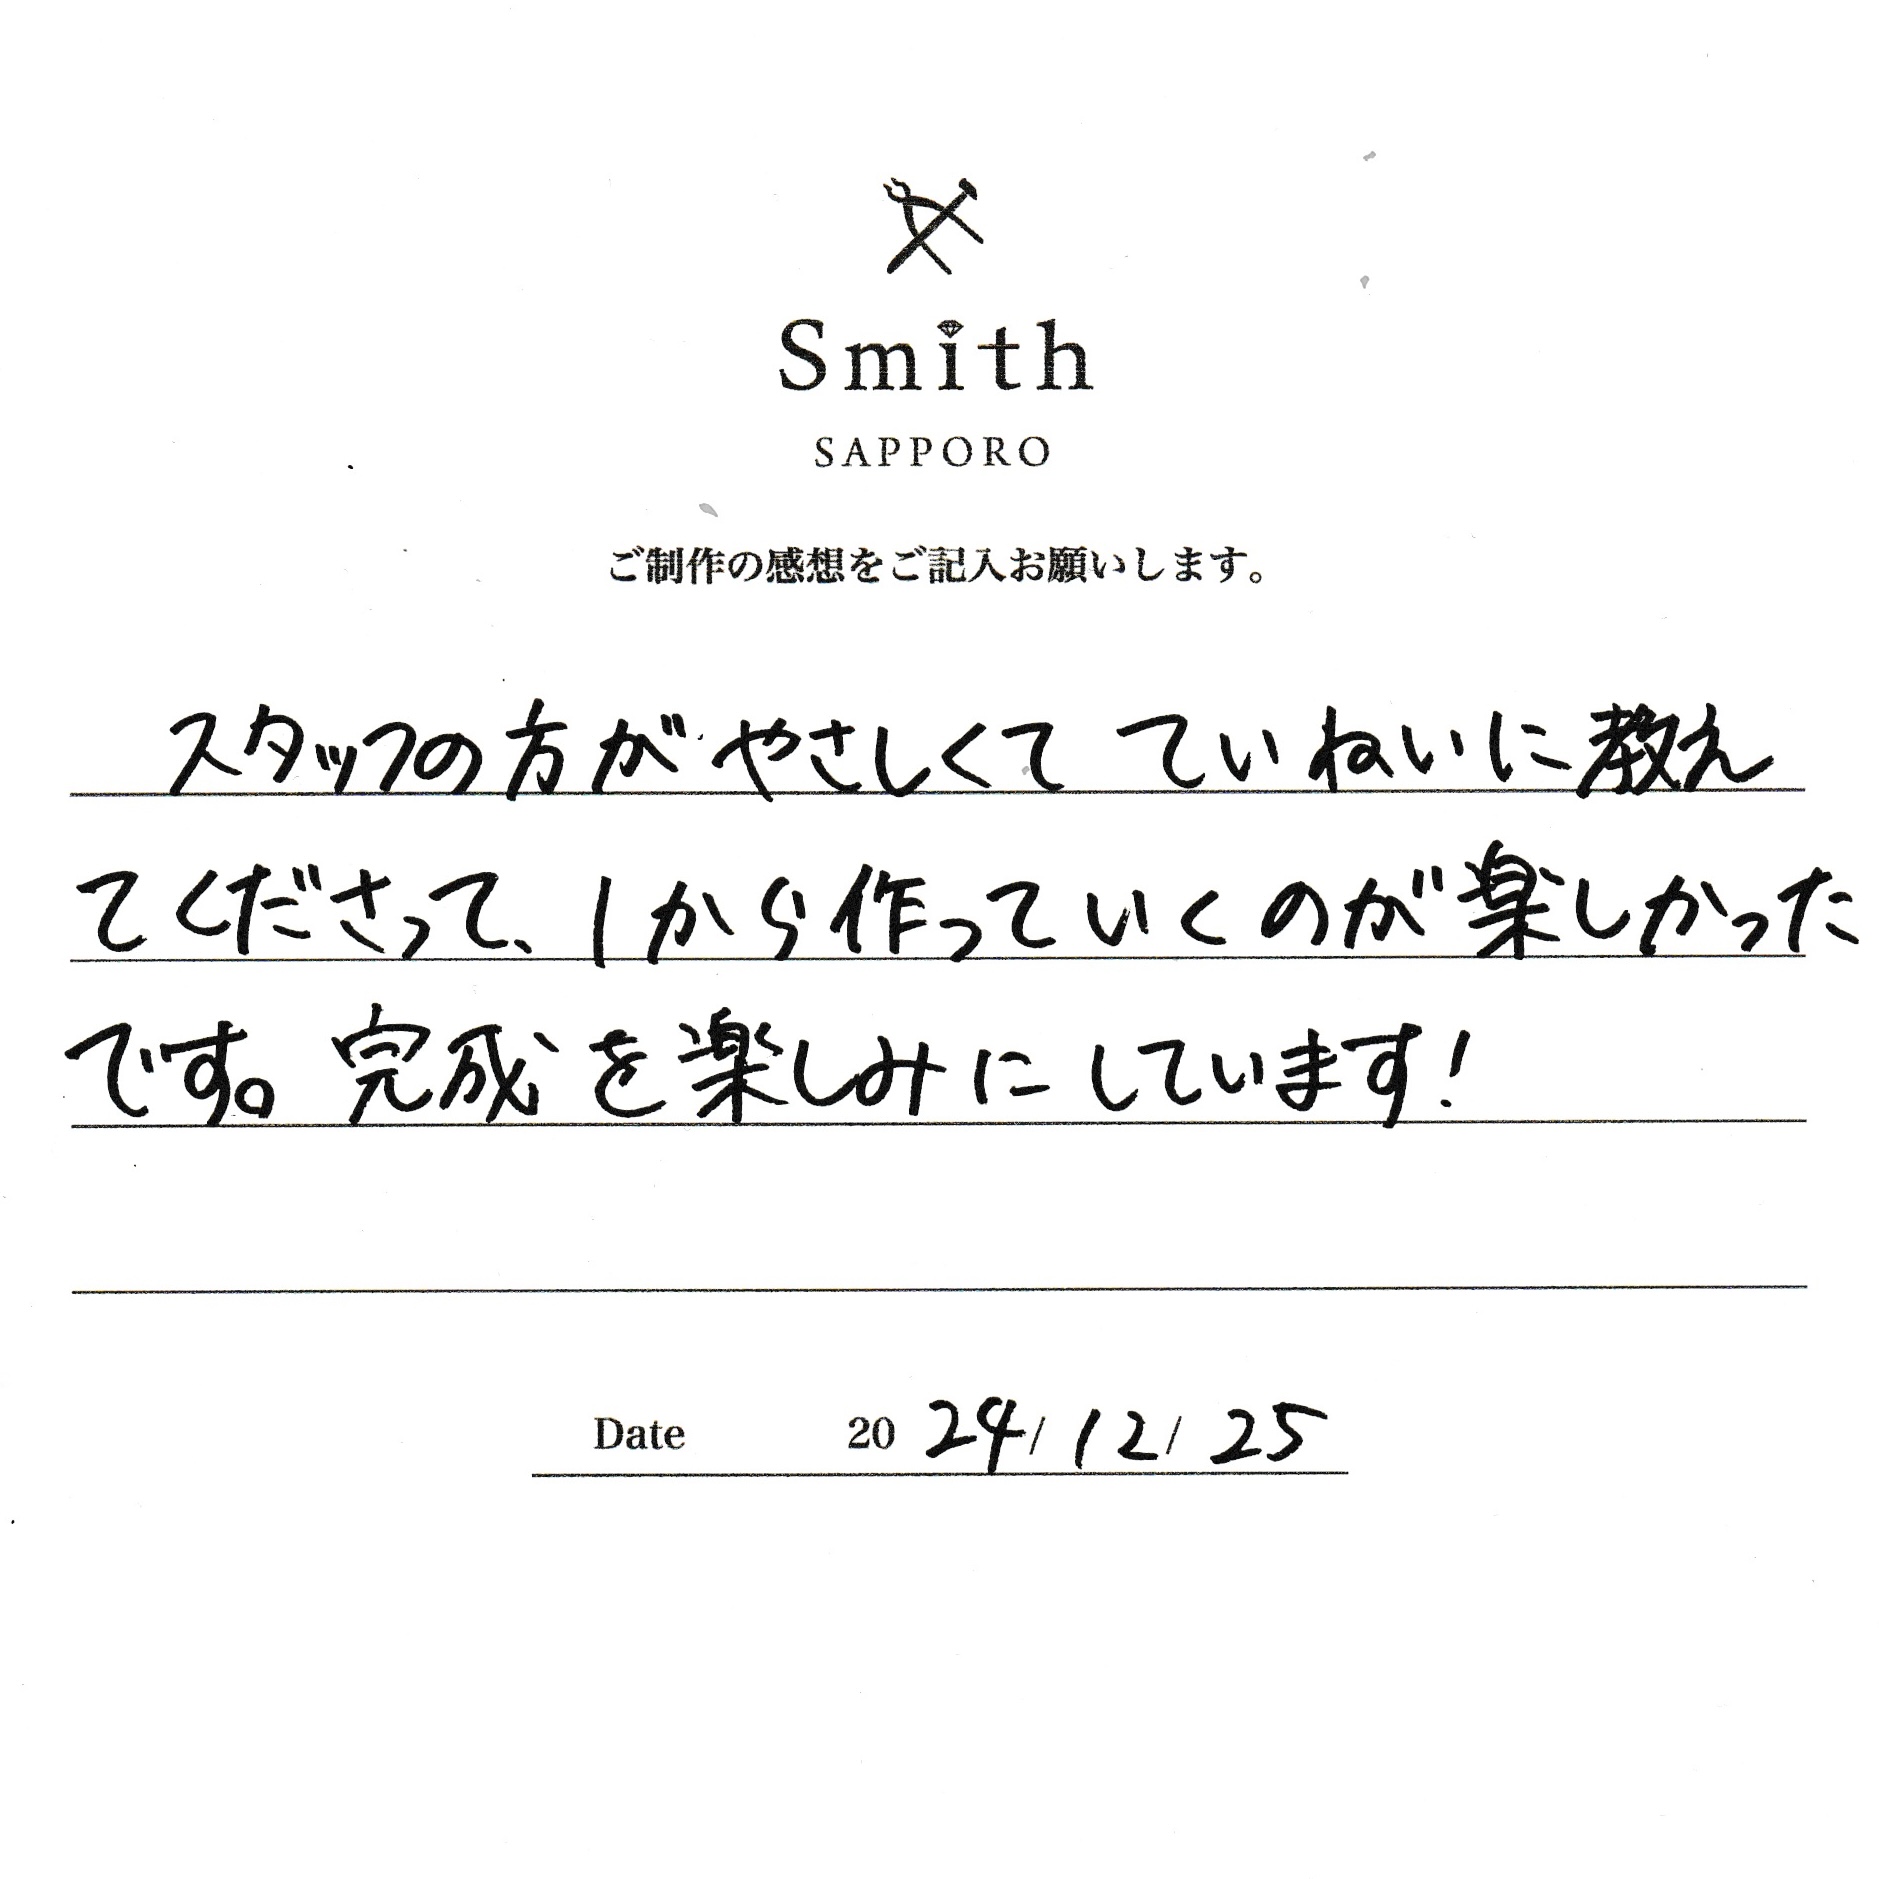 Smith
SAPPORO
ご制作の感想をご記入お願いします。
スタッフの方がやさしくて ていねいに教え
てくださって、1から作っていくのが楽しかった
です。完成を楽しみにしています!
Date 2024/12/25